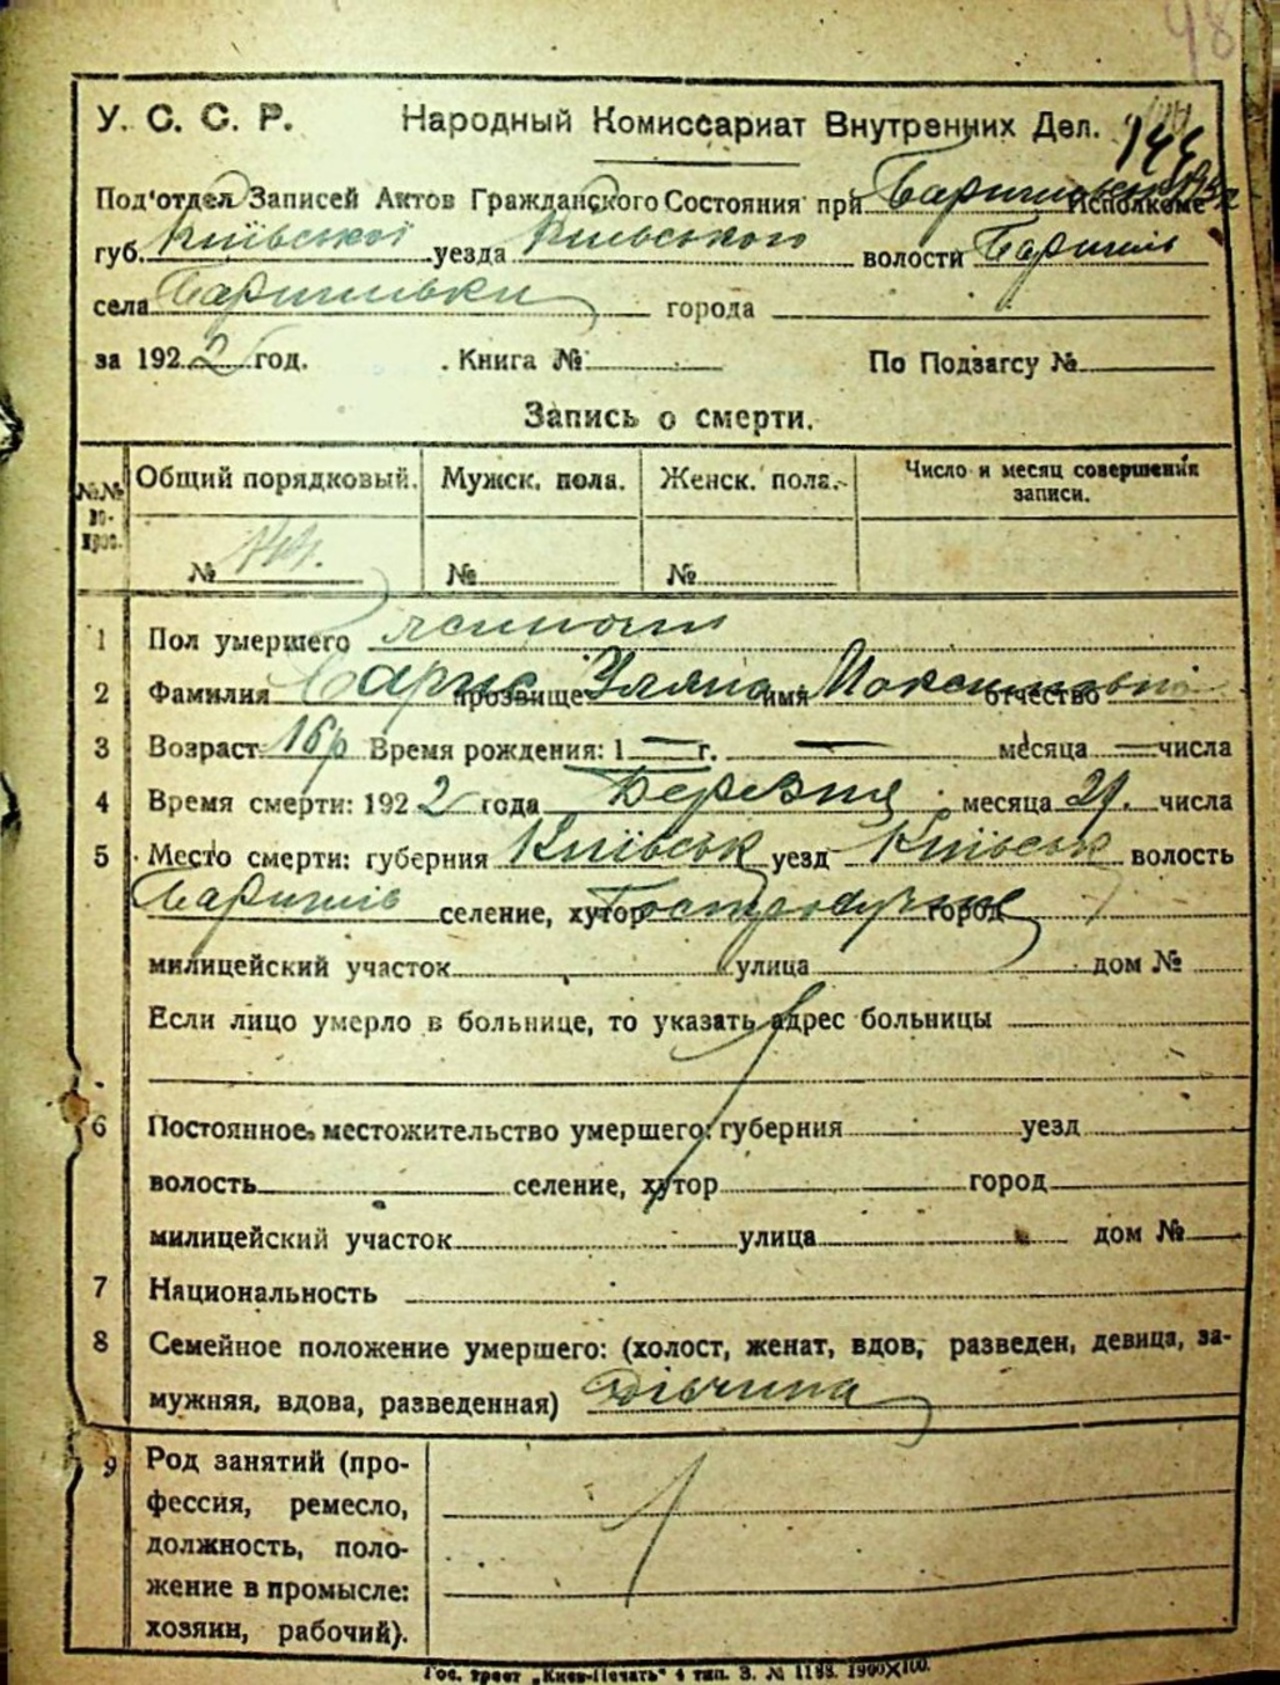 98
У. С. С. Р. Народный Комиссариат Внутренних Дел. 144
Под'отдел Записей Актов Гражданского Состояния при Исполкоме
губ. Київської уезда Київського волости Баришів
села Баришівки города
за 1922 год. Книга № По Подзагсу №
Запись о смерти.
№№ во-прос. Общий порядковый. Мужск. пола. Женск. пола. Число и месяц совершения записи.
№ 144. № №
1 Пол умершего жіночий
2 Фамилия прозвище Уляна имя Максимівна отчество
3 Возраст 16 р Время рождения: 1 — г. — месяца — числа
4 Время смерти: 1922 года Березня месяца 29. числа
5 Место смерти: губерния Київськ уезд Київськ волость
Баришів селение, хутор город
милицейский участок улица дом №
Если лицо умерло в больнице, то указать адрес больницы
6 Постоянное местожительство умершего: губерния уезд
волость селение, хутор город
милицейский участок улица дом №
7 Национальность
8 Семейное положение умершего: (холост, женат, вдов, разведен, девица, за-
мужняя, вдова, разведенная) Дівчина
9 Род занятий (про-
фессия, ремесло,
должность, поло-
жение в промысле:
хозяин, рабочий).
Гос. трест „Киев-Печать" 4 тип. З. № 1188. 1900X100.